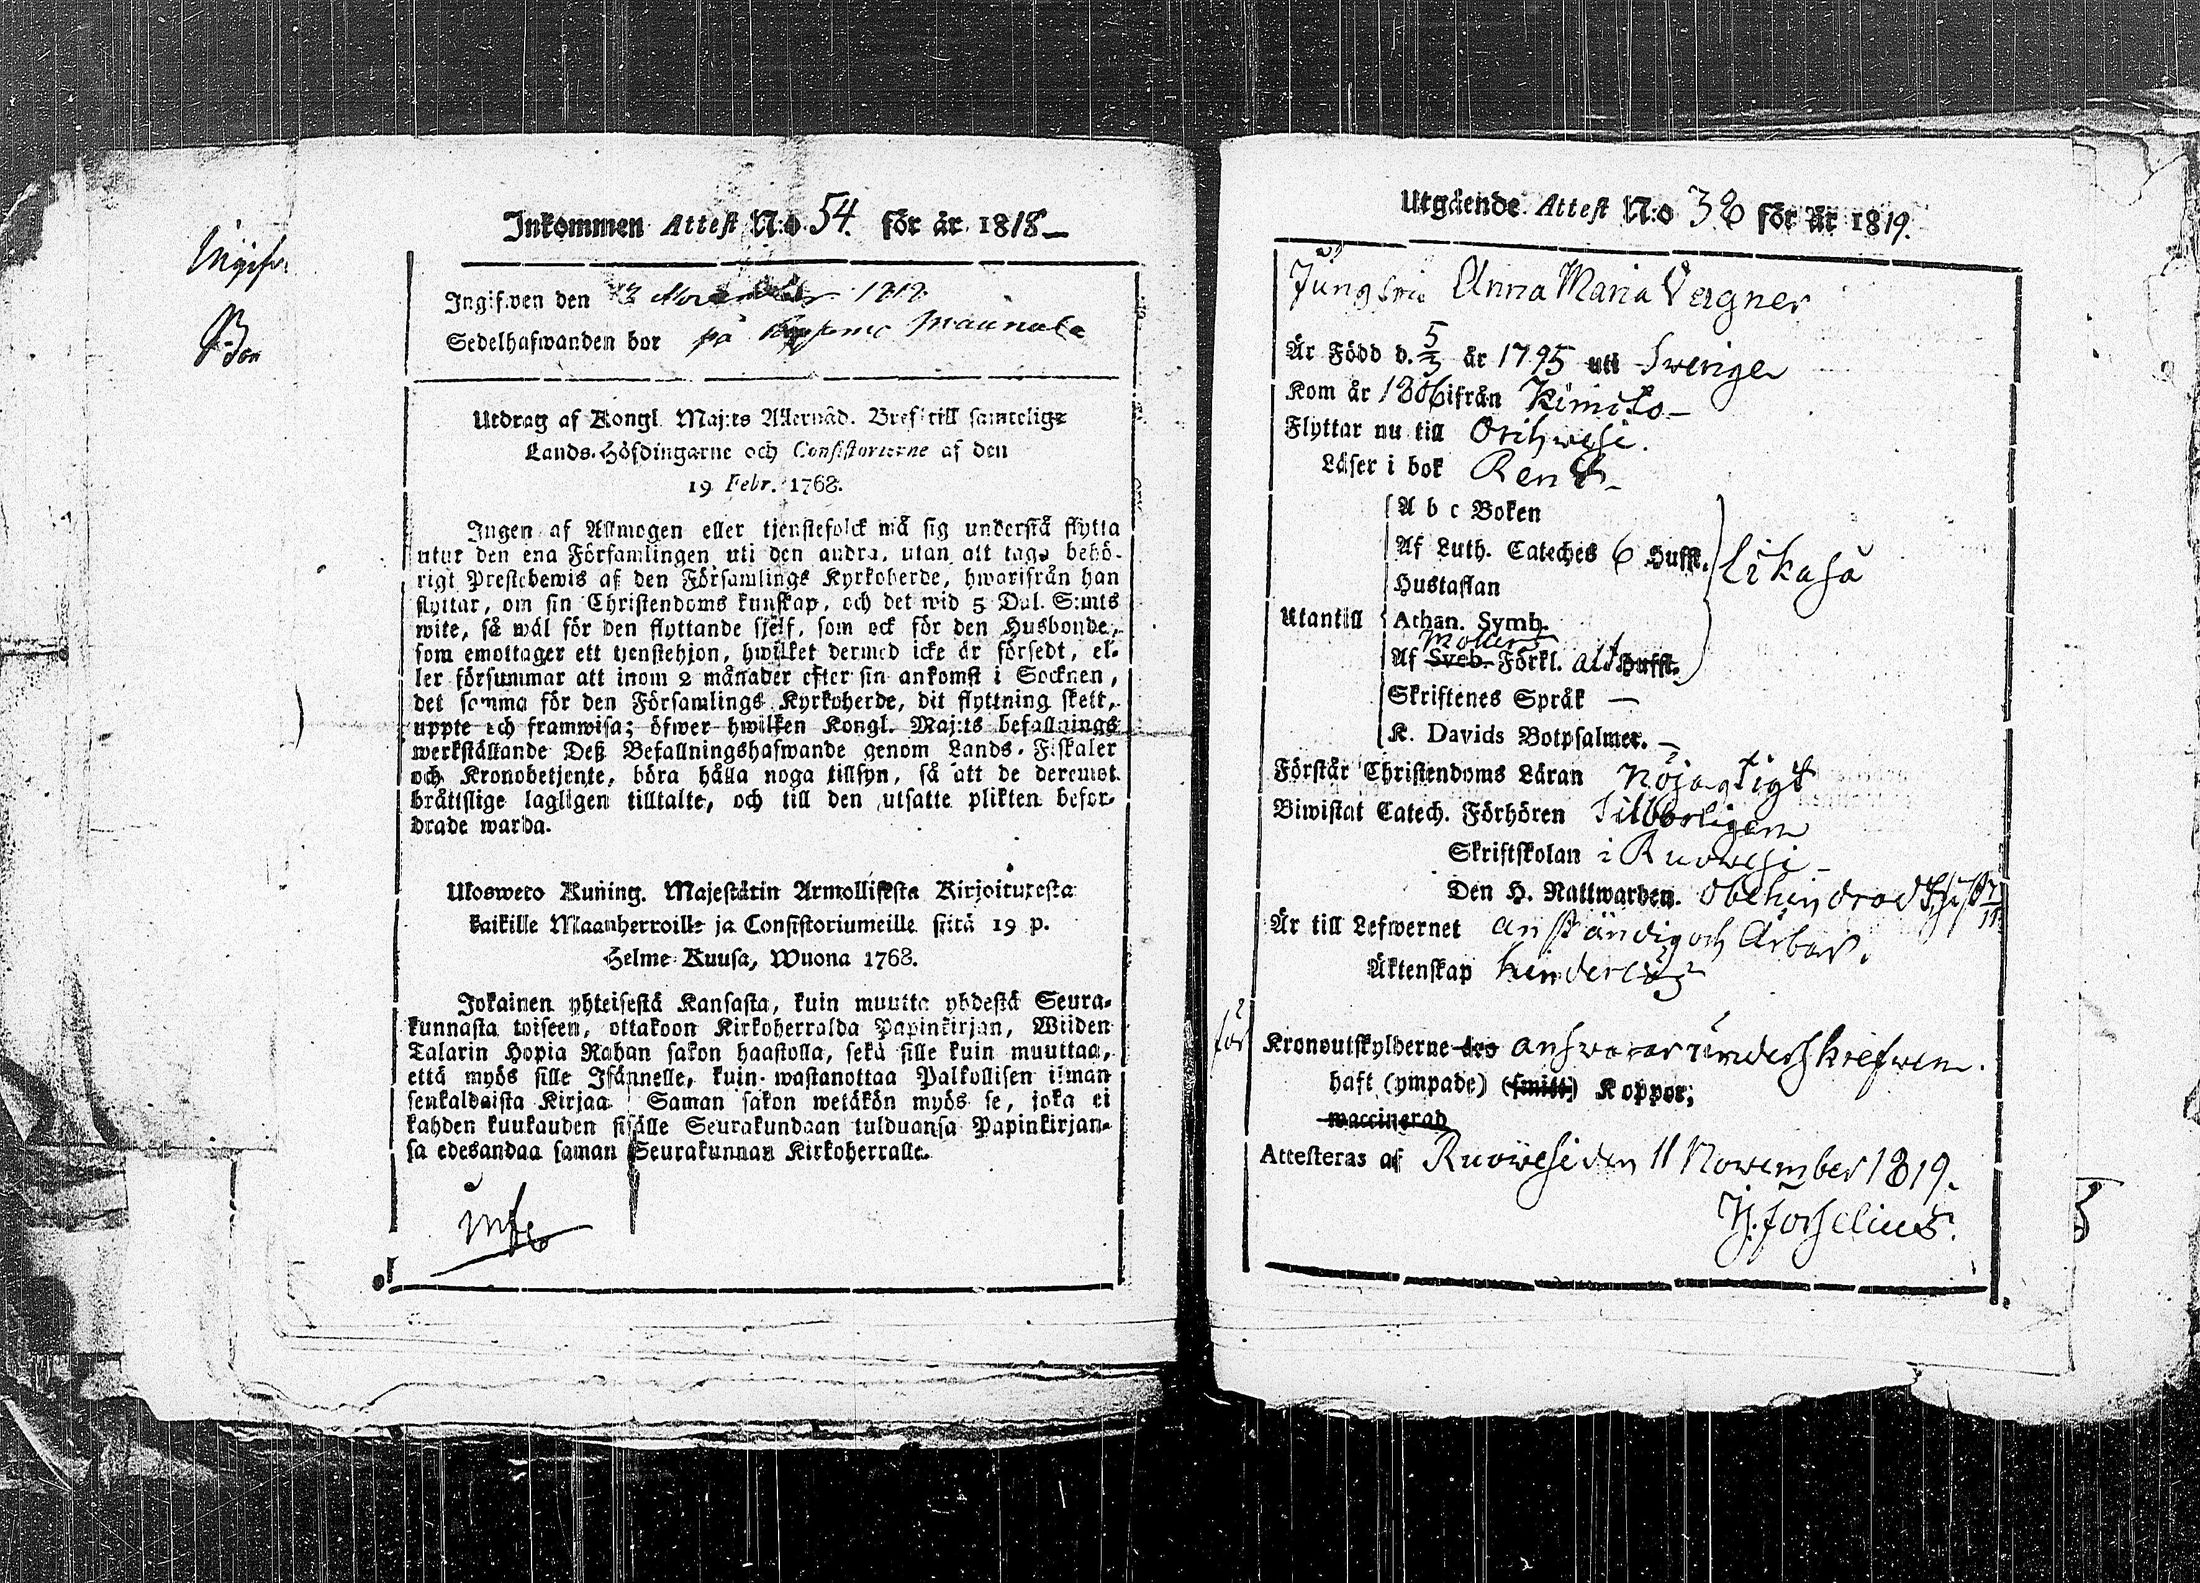 Inkommen Attest N:o 54. för år 1818
Ingifwen den November 1818
Sedelhafwanden bor på Maunula
Utdrag af Kongl. Maj:ts Allernåd. Bref till samtelige
Lands-Höfdingarne och Consistorierne af den
19 Febr. 1768.
Ingen af Allmogen eller tjenstefolck må sig understå flytta
utur den ena Församlingen uti den andra, utan att taga behö-
rigt Prestebewis af den Församlings Kyrkoherde, hwarifrån han
flyttar, om sin Christendoms kunskap, och det wid 5 Dal. S:mts
wite, så wäl för den flyttande sjelf, som ock för den Husbonde,
som emottager ett tjenstehjon, hwilket dermed icke är försedt, el-
ler försummar att inom 2 månader efter sin ankomst i Socknen,
det samma för den Församlings Kyrkoherde, dit flyttning skett,
uppte och framwisa; öfwer hwilken Kongl. Maj:ts befallnings
werkställande Deß Befallningshafwande genom Lands-Fiskaler
och Kronobetjente, böra hålla noga tillsyn, så att de deremot
bråttslige lagligen tilltalte, och till den utsatte plikten befor-
drade warda.
Ulosweto Kuning. Majestätin Armollisesta Kirjoituxesta
kaikille Maanherroille ja Consistoriumeille siitä 19 p.
Helme-Kuusa, Wuona 1768.
Jokainen yhteisestä Kansasta, kuin muutta yhdestä Seura-
kunnasta toiseen, ottakoon Kirkoherralda Papinkirjan, Wiiden
Talarin Hopia Rahan sakon haastolla, sekä sille kuin muuttaa,
että myös sille Isännelle, kuin wastanottaa Palkollisen ilman
senkaldaista Kirjaa Saman sakon wetäkön myös se, joka ei
kahden kuukauden sisälle Seurakundaan tulduansa Papinkirjan-
sa edesandaa saman Seurakunnan Kirkoherralle.
Utgående Attest N:o 38 för år 1819.
Jungfru Anna Maria Vagner
Är Född d. 5/3 år 1795 uti Swerige
Kom år 1806 ifrån Kimito
Flyttar nu till Orihwesi.
Läser i bok Rent
A b c Boken
Af Luth. Cateches 6 Hufst. likaså
Hustaflan
Utantill Athan. Symb.
Möllers
Af Sveb. Förkl. alt Hufst.
Skriftenes Språk —
K. Davids Botpsalmer. —
Förstår Christendoms Läran nöjagtigt
Biwistat Catech. Förhören Tilbörligen
Skriftskolan i Ruowesi
Den H. Nattwarden. obehindrad
Är till Lefwernet anständig och Ärbar.
Äktenskap hinderlös
för Kronoutskylderne des answarar underskrefwen.
haft (ympade) (smitt) Koppor;
waccinerad
Attesteras af Ruowesi den 11 November 1819.
H. Forselius.